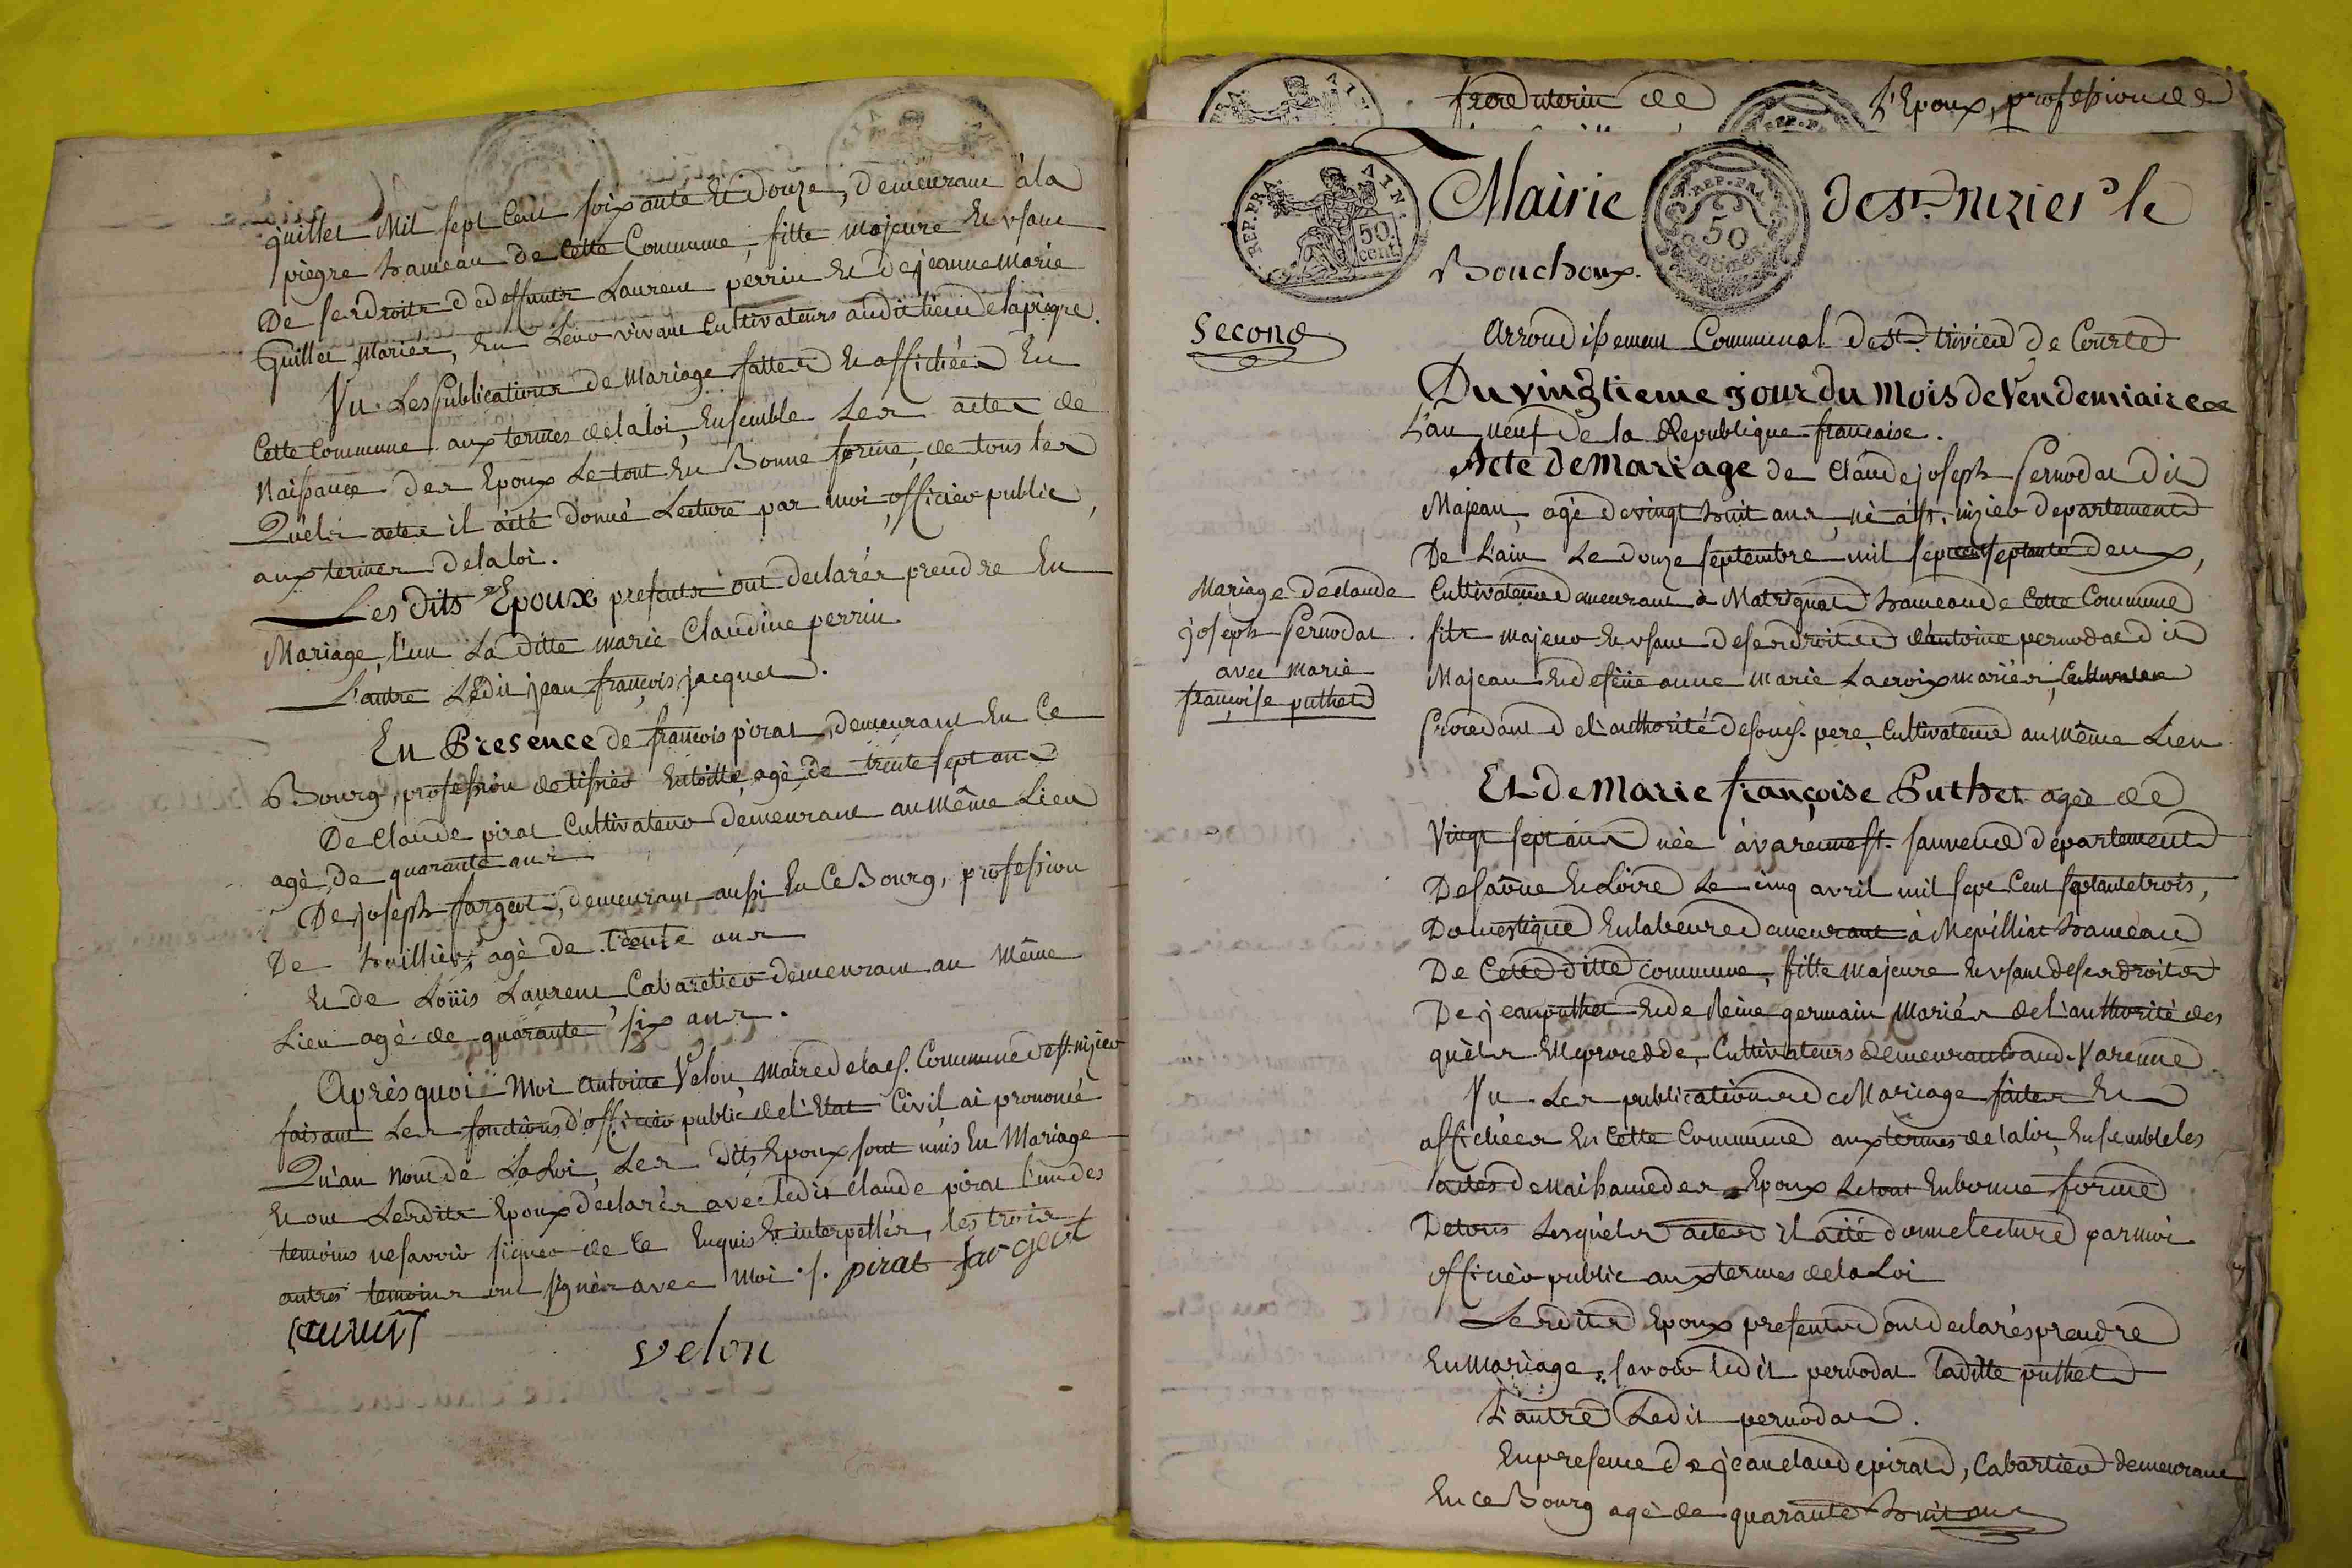 juillet Mil sept Cent soixante et douze, demeurant à la
piegre hameau de cette Commune, fille majeure et usant
De ses droits de deffunts Laurent perrin et de jeanne Marie
Guillet Mariés, en leur vivant Cultivateurs audit lieu de la piegre.
Vu Les publications de Mariage faittes et affichées En
Cette Commune aux termes de la loi, Ensemble Les actes de
Naissance des Epoux Le tout En Bonne forme, de tous les
Quels actes il a été donné Lecture par moi officier public,
aux termes de la loi.
Les dits Epoux presents ont declarés prendre En
Mariage, l'un La ditte marie Claudine perrin
L'autre Ledit jean françois jacquet.
En Presence de françois pirat, demeurant En Ce
Bourg, profession de tissier En toille, agé de trente sept ans
De Claude pirat Cultivateur demeurant au Même Lieu
agé de quarante ans
De joseph fargeot, demeurant aussi En Ce Bourg, profession
De huillier, agé de trente ans
et de Loüis Laurent Cabaretier demeurant au Même
Lieu agé de quarante six ans.
Après quoi Moi Antoine Velon, Maire de la es. Commune de st. nizier
faisant Les fonctions d'officier public de l'Etat Civil ai prononcé
Qu'au Nom de La Loi, Les dits Epoux sont unis En Mariage
et ont Lesdits Epoux declarés avec ledit Claude pirat l'un des
temoins ne savoir signer de ce Enquis et interpellés, les trois
autres temoins ont signés avec Moi. f. pirat fargeot
laurent
velon
frere uterin de L'Epoux, profession de
REP. FRA. AIN. 50. cent.
REP. FRA. 50 centimes
Mairie de St. nizier le
Bouchoux.
Second
Arrondissement Communal de St. trivier de Courtes
Du vingtieme jour du Mois de Vendemiaire
L'an neuf de la Republique francaise.
Acte de Mariage de Claude joseph Pernodat dit
Majean, agé de vingt huit ans, né a st. nizier departement
De L'ain Le douze septembre mil sept cent septante deux,
Mariage de claude
joseph Pernodat
avec marie
françoise puthet
Cultivateur demeurant à Matrignat hameau de Cette Commune
fils majeur et usant de ses droits d'antoine pernodat dit
Majean et de feüe anne Marie Lacroix mariés, Cultivateurs
Procedant de l'authorité de son es. pere, Cultivateur au même Lieu
Et de Marie françoise Puthet agée de
Vingt sept ans née à varenne st. sauveur departement
De saône et Loire Le cinq avril mil sept Cent septante trois,
Domestique En labeure demeurant à Mevilliat hameau
De Cette ditte commune, fille majeure et usant de ses droits
De jean puthet et de Reine germain Mariés de l'authorité des
quels Elle procedde, Cultivateurs demeurants aud. Varenne
Vu Les publications de Mariage faites et
affichées En Cette Commune aux termes de la loi, Ensemble les
actes de Naissance des Epoux Le tout En bonne forme
De tous Lesquels actes il a été donné lecture par moi
officier public aux termes de la Loi
Lesdits Epoux presents ont declarés prendre
En mariage, savoir ledit pernodat laditte puthet
L'autre Ledit pernodat.
En presence de jean claude pirat, Cabartier demeurant
En ce Bourg agé de quarante huit ans